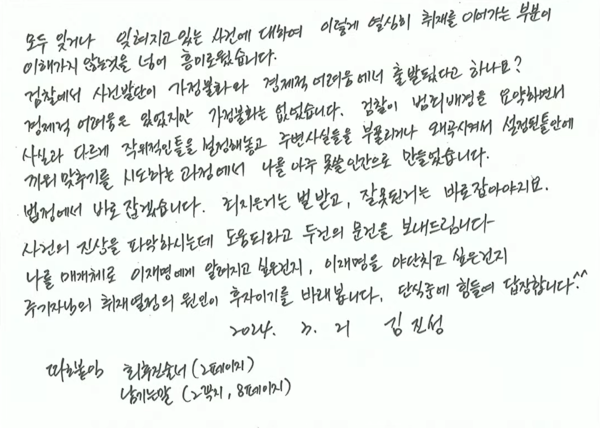 모두 잊거나 잊혀지고 있는 사건에 대하여 이렇게 열심히 취재를 이어가는 부분이
이해가지 않는것을 넘어 흥미로웠습니다.
검찰에서 사건발단이 가정불화와 경제적 어려움에서 출발됐다고 하나요?
경제적 어려움은 있었지만 가정불화는 없었습니다. 검찰이 범죄배경을 요약하면서
사실과 다르게 작위적인틀을 설정해놓고 주변사실들을 부풀리거나 왜곡시켜서 설정된틀안에
끼워 맞추기를 시도하는 과정에서 나를 아주 못쓸 인간으로 만들었습니다.
법정에서 바로 잡겠습니다. 죄지은거는 벌 받고, 잘못된거는 바로잡아야지요.
사건의 진상을 파악하시는데 도움되라고 두건의 문건을 보내드립니다-
나를 매개체로 이재명에게 알려지고 싶은건지, 이재명을 야단치고 싶은건지
주기자님의 취재열정의 원인이 후자이기를 바래봅니다. 단식중에 힘들여 답장합니다.^^
2024. 3. 21 김진성
따로붙임 최후진술서 (2페이지)
남기는말 (2꼭지, 8페이지)